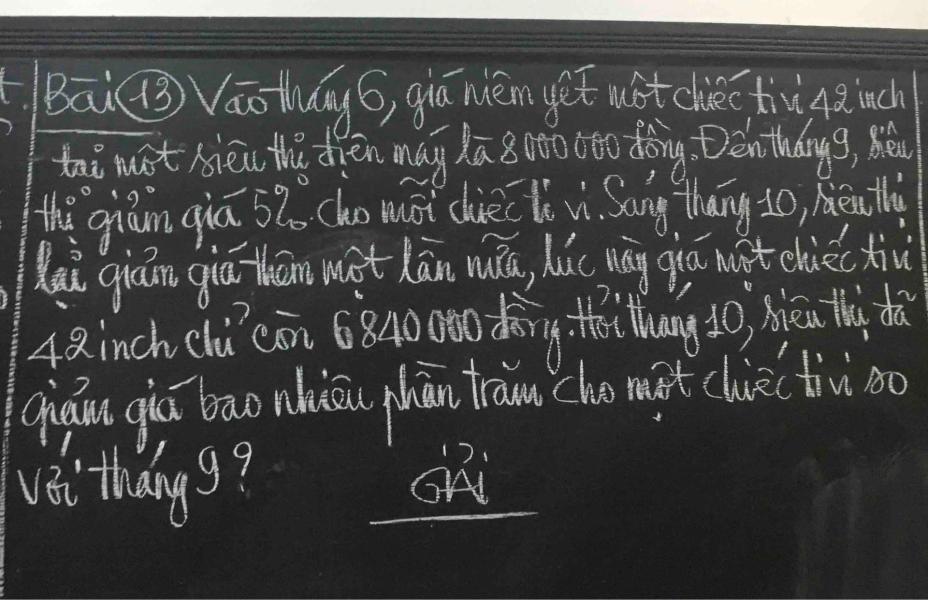 Bài 13 Vào tháng 6, giá niêm yết một chiếc ti vi 42 inch
tại một siêu thị điện máy là 8 000 000 đồng. Đến tháng 9, siêu
thị giảm giá 5% cho mỗi chiếc ti vi. Sang tháng 10, siêu thị
lại giảm giá thêm một lần nữa, lúc này giá một chiếc ti vi
42 inch chỉ còn 6 840 000 đồng. Hỏi tháng 10, siêu thị đã
giảm giá bao nhiêu phần trăm cho một chiếc ti vi so
với tháng 9?
GIẢI